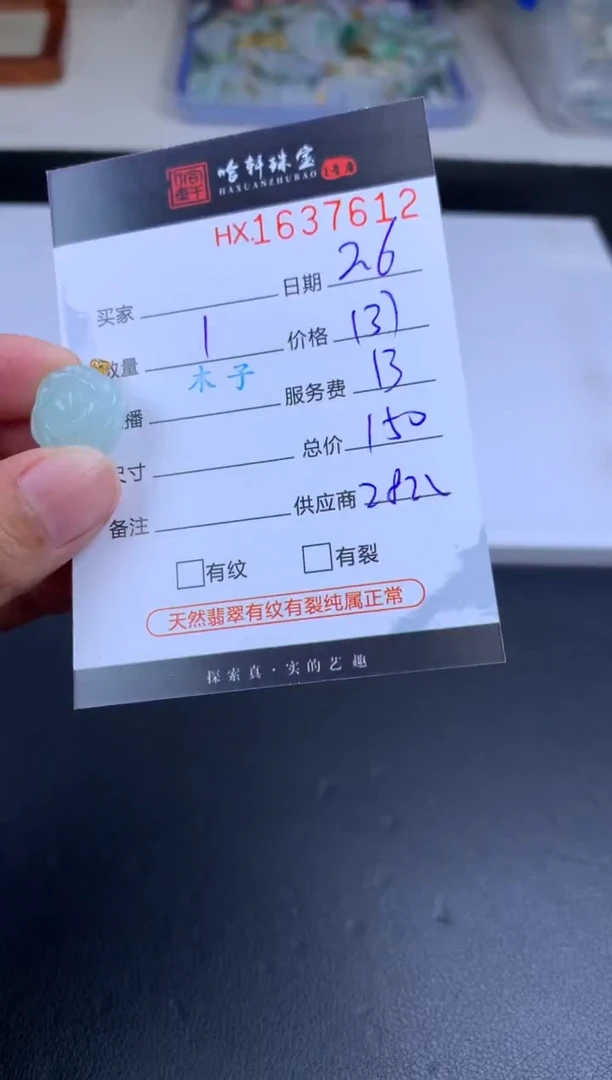 哈轩珠宝
HAXUANZHUBAO 1号店
HX.1637612
买家 日期 26
数量 1 价格 137
木子
播 服务费 13
尺寸 总价 150
备注 供应商
有纹 有裂
天然翡翠有纹有裂纯属正常
探索真·实的艺趣